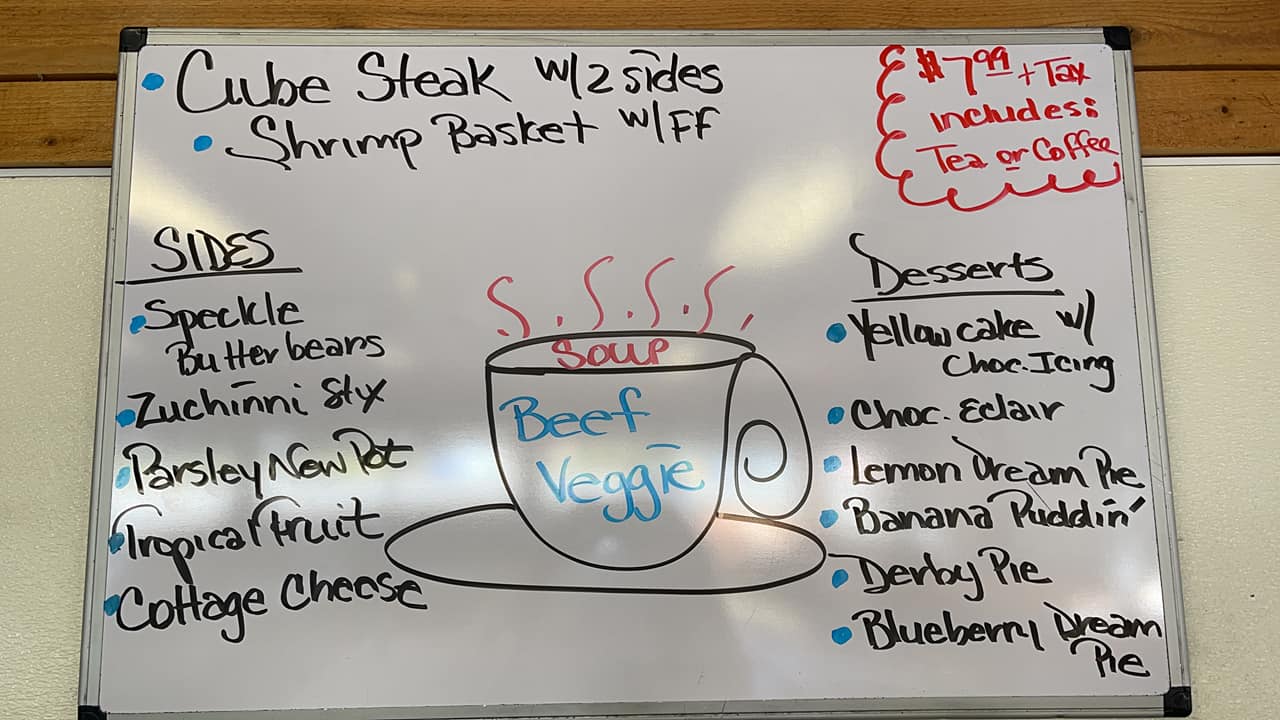 Cube Steak w/2 sides
Shrimp Basket w/FF
$7.99 + Tax
includes:
Tea or Coffee
SIDES
Speckle
Butterbeans
Zuchinni Stix
Parsley New Pot
Tropical Fruit
Cottage Cheese
S.S.S.S.
Soup
Beef
Veggie
Desserts
Yellow cake w/
Choc. Icing
Choc. Eclair
Lemon Dream Pie
Banana Puddin'
Derby Pie
Blueberry Dream
Pie